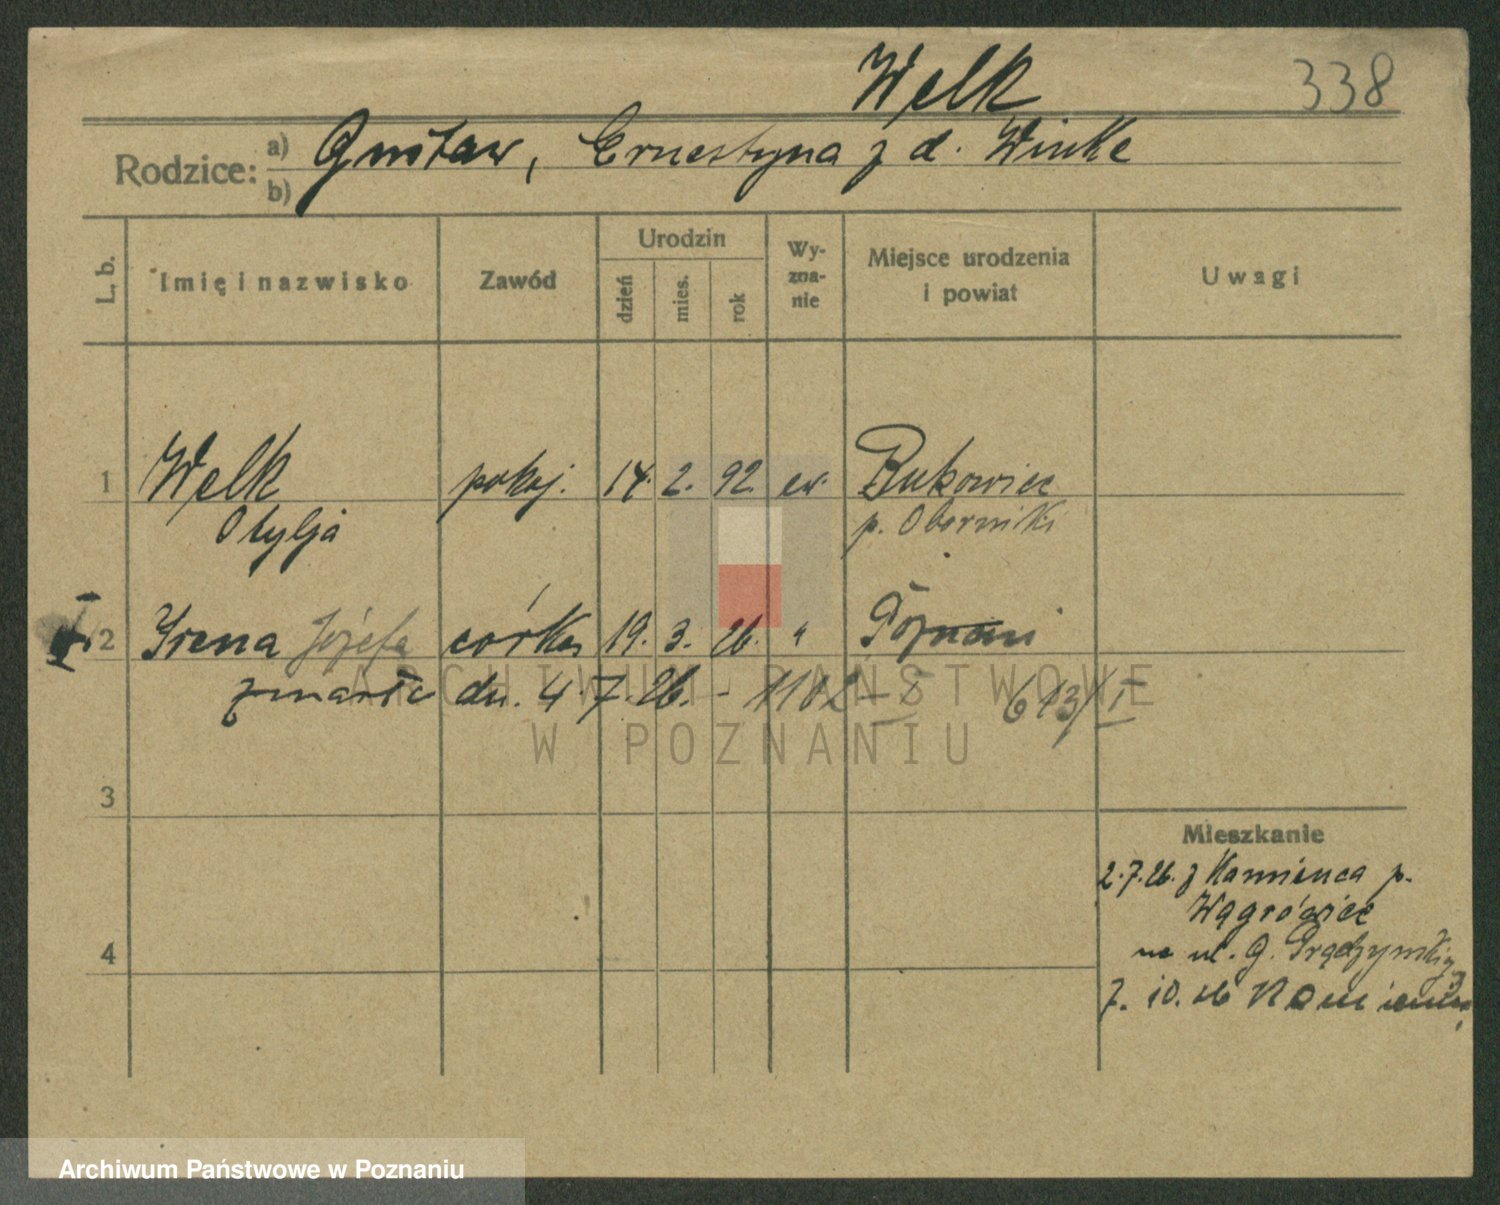 Welk 338
Rodzice: a) Gustaw, Ernestyna z d. Winke
b)
L. b. Imię i nazwisko Zawód Urodzin dzień mies. rok Wyznanie Miejsce urodzenia i powiat Uwagi
1 Welk pokoj. 14. 2. 92. ew. Bukowiec
Otylja p. Oborniki
2 Irena Józefa córka 19. 3. 26. " Poznań
zmarła dn. 4.7.26. - 1102 - I 613/I
3
Mieszkanie
2.7.26. z Kamieńca p.
Wągrówiec
4
na ul. G. Prądzyńskiego
7. 10. 26
ARCHIWUM PAŃSTWOWE
W POZNANIU
Archiwum Państwowe w Poznaniu